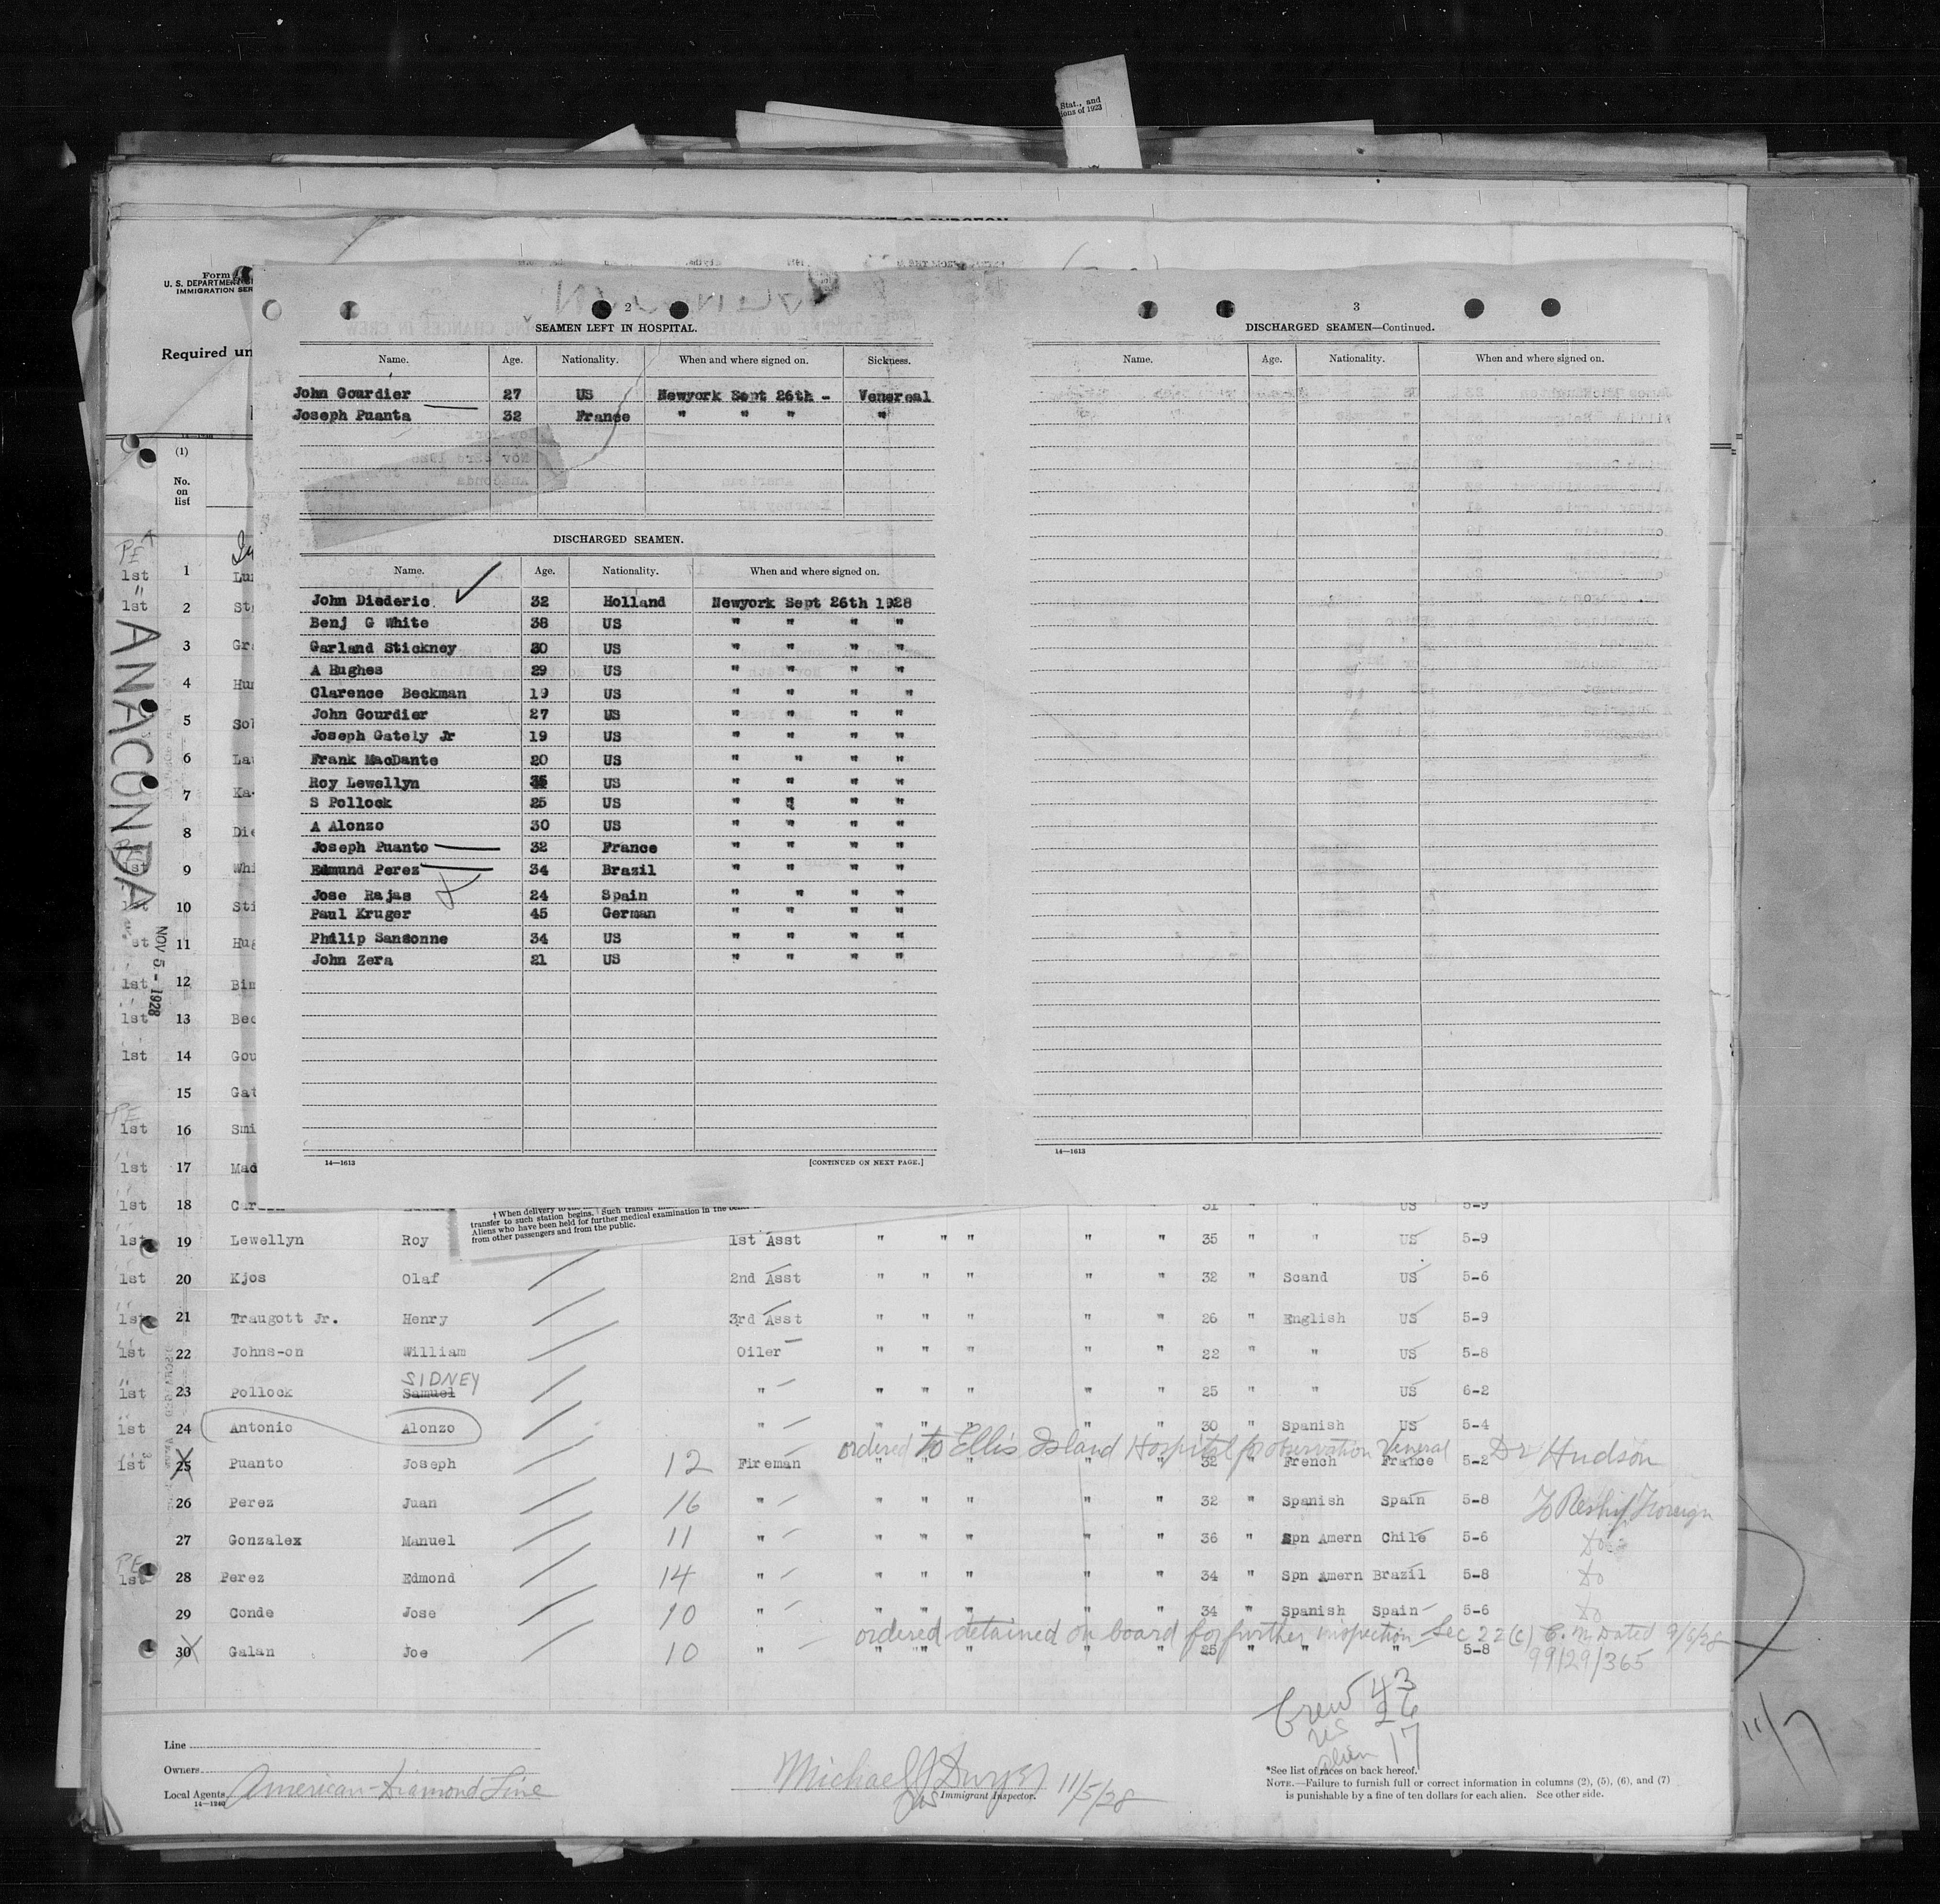 Stat., and
ions of 1923
Form
U. S. DEPARTMENT
IMMIGRATION SER
Required un
2
SEAMEN LEFT IN HOSPITAL.
Name. Age. Nationality. When and where signed on. Sickness.
John Gourdier 27 US Newyork Sept 26th - Venereal
Joseph Puanta 32 France " " " "
DISCHARGED SEAMEN.
Name. Age. Nationality. When and where signed on.
John Diederic. 32 Holland Newyork Sept 26th 1928
Benj G White 38 US " " " "
Garland Stickney 30 US " " " "
A Hughes 29 US " " " "
Clarence Beckman 19 US " " " "
John Gourdier 27 US " " " "
Joseph Gately Jr 19 US " " " "
Frank MacDante 20 US " " " "
Roy Lewellyn 35 US " " " "
S Pollock 25 US " " " "
A Alonzo 30 US " " " "
Joseph Puanto 32 France " " " "
Edmund Perez 34 Brazil " " " "
Jose Rajas 24 Spain " " " "
Paul Kruger 45 German " " " "
Philip Sansonne 34 US " " " "
John Zera 21 US " " " "
14—1613 [CONTINUED ON NEXT PAGE.]
3
DISCHARGED SEAMEN—Continued.
Name. Age. Nationality. When and where signed on.
14—1613
(1)
No.
on
list
PE
1st 1 Lun
1st 2 St
3 Gr
4 Hun
5 Sol
6 Lau
7 Ka
8 Die
1st 9 Whi
1st 10 Sti
1st 11 Hug
1st 12 Bin
1st 13 Bec
1st 14 Gou
15 Gat
PE
1st 16 Smi
1st 17 Mad
1st 18 Car 31 " US 5-9
ANACONDA
NOV 5 - 1928
† When delivery to the
transfer to such station begins. Such transfer
Aliens who have been held for further medical examination in the
from other passengers and from the public.
1st 19 Lewellyn Roy 1st Asst " " " " " 35 " " US 5-9
1st 20 Kjos Olaf 2nd Asst " " " " " 32 " Scand US 5-6
1st 21 Traugott Jr. Henry 3rd Asst " " " " " 26 " English US 5-9
1st 22 Johns-on William Oiler " " " " " 22 " " US 5-8
SIDNEY
1st 23 Pollock Samuel " " " " " " 25 " " US 6-2
1st 24 Antonio Alonzo " " " " " " 30 " Spanish US 5-4
ordered to Ellis Island Hospital for observation Veneral Dr Hudson
1st 25 Puanto Joseph 12 Fireman " " " " " 32 " French France 5-2
26 Perez Juan 16 " " " " " " 32 " Spanish Spain 5-8 To Reship Foreign
27 Gonzalex Manuel 11 " " " " " " 36 " Spn Amern Chile 5-6 do
PE
1st 28 Perez Edmond 14 " " " " " " 34 " Spn Amern Brazil 5-8 do
29 Conde Jose 10 " " " " " " 34 " Spanish Spain 5-6 do
ordered detained on board for further inspection Sec 22(c) C. M. Dated 9/6/28
30 Galan Joe 10 " " " " " " 25 " " " 5-8 99129/365
Crew 43
US 26
alien 17
11/7
Line
Owners
Local Agents American-Diamond Line
14—1240
Michael J Dwyer 11/5/28
Immigrant Inspector.
*See list of races on back hereof.
NOTE.—Failure to furnish full or correct information in columns (2), (5), (6), and (7)
is punishable by a fine of ten dollars for each alien. See other side.